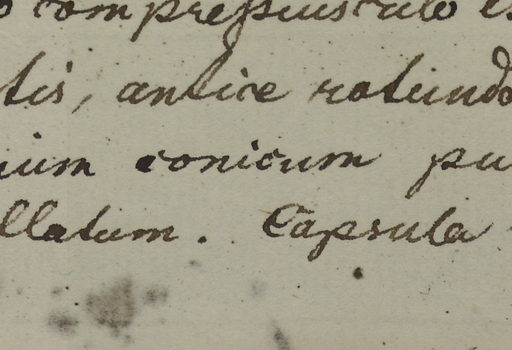 compressiusculo
tis, antice rotundo
ium conicum pu
llatum. Capsula